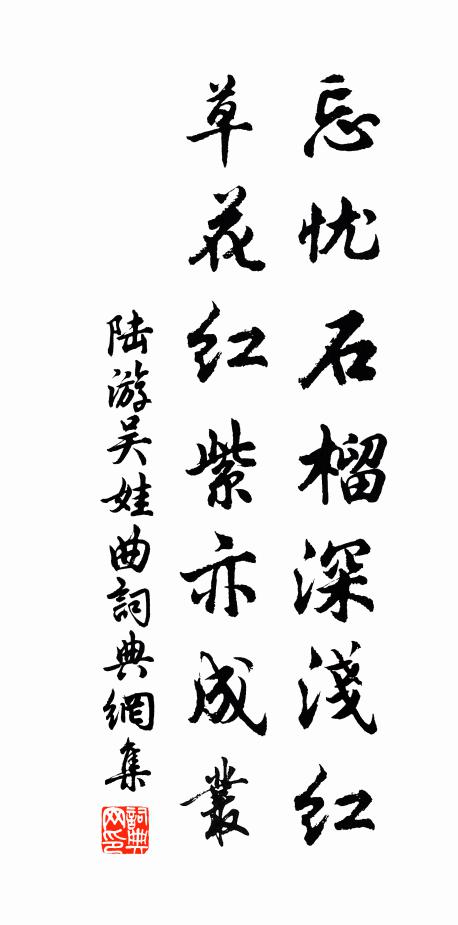 忘忧石榴深淺红
草花红紫亦成叢
陆游吴娃曲詞典網集
詞典网印